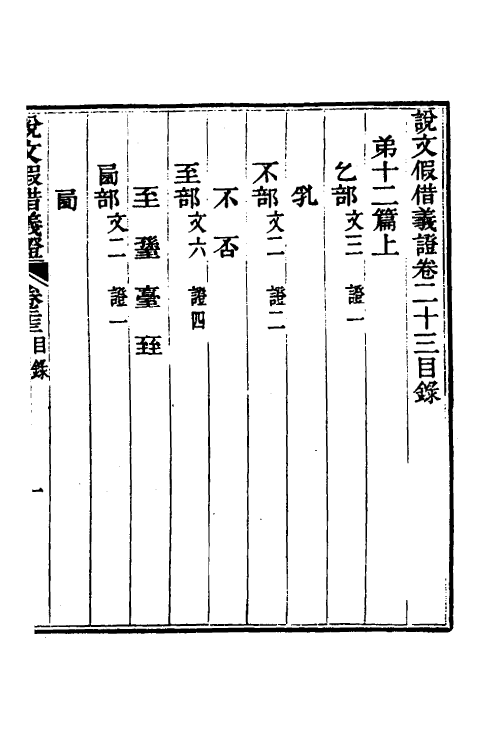 說文假借義證卷二十三目錄
弟十二篇上
乞部文三 證一
乳
不部文二 證二
不 否
至部文六 證四
至 臺 臸
卥部文二 證一
卥
說文假借義證 卷二十三目錄 一